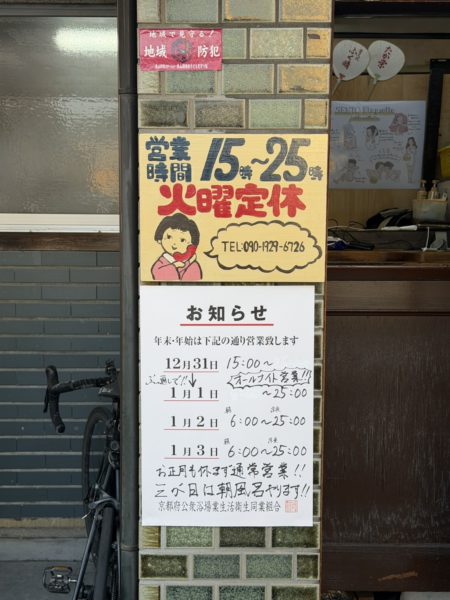 地域で見守る!
地域 防犯
営業時間 15時~25時
火曜定休
TEL:090-1929-6726
SENTO Etiquette
お知らせ
年末・年始は下記の通り営業致します
12月31日 15:00~
ぶっ通しで!! オールナイト営業!!
1月1日 ~25:00
1月2日 朝6:00~25:00
1月3日 朝6:00~25:00
お正月も休まず通常営業!!
三が日は朝風呂やります!!
京都府公衆浴場業生活衛生同業組合